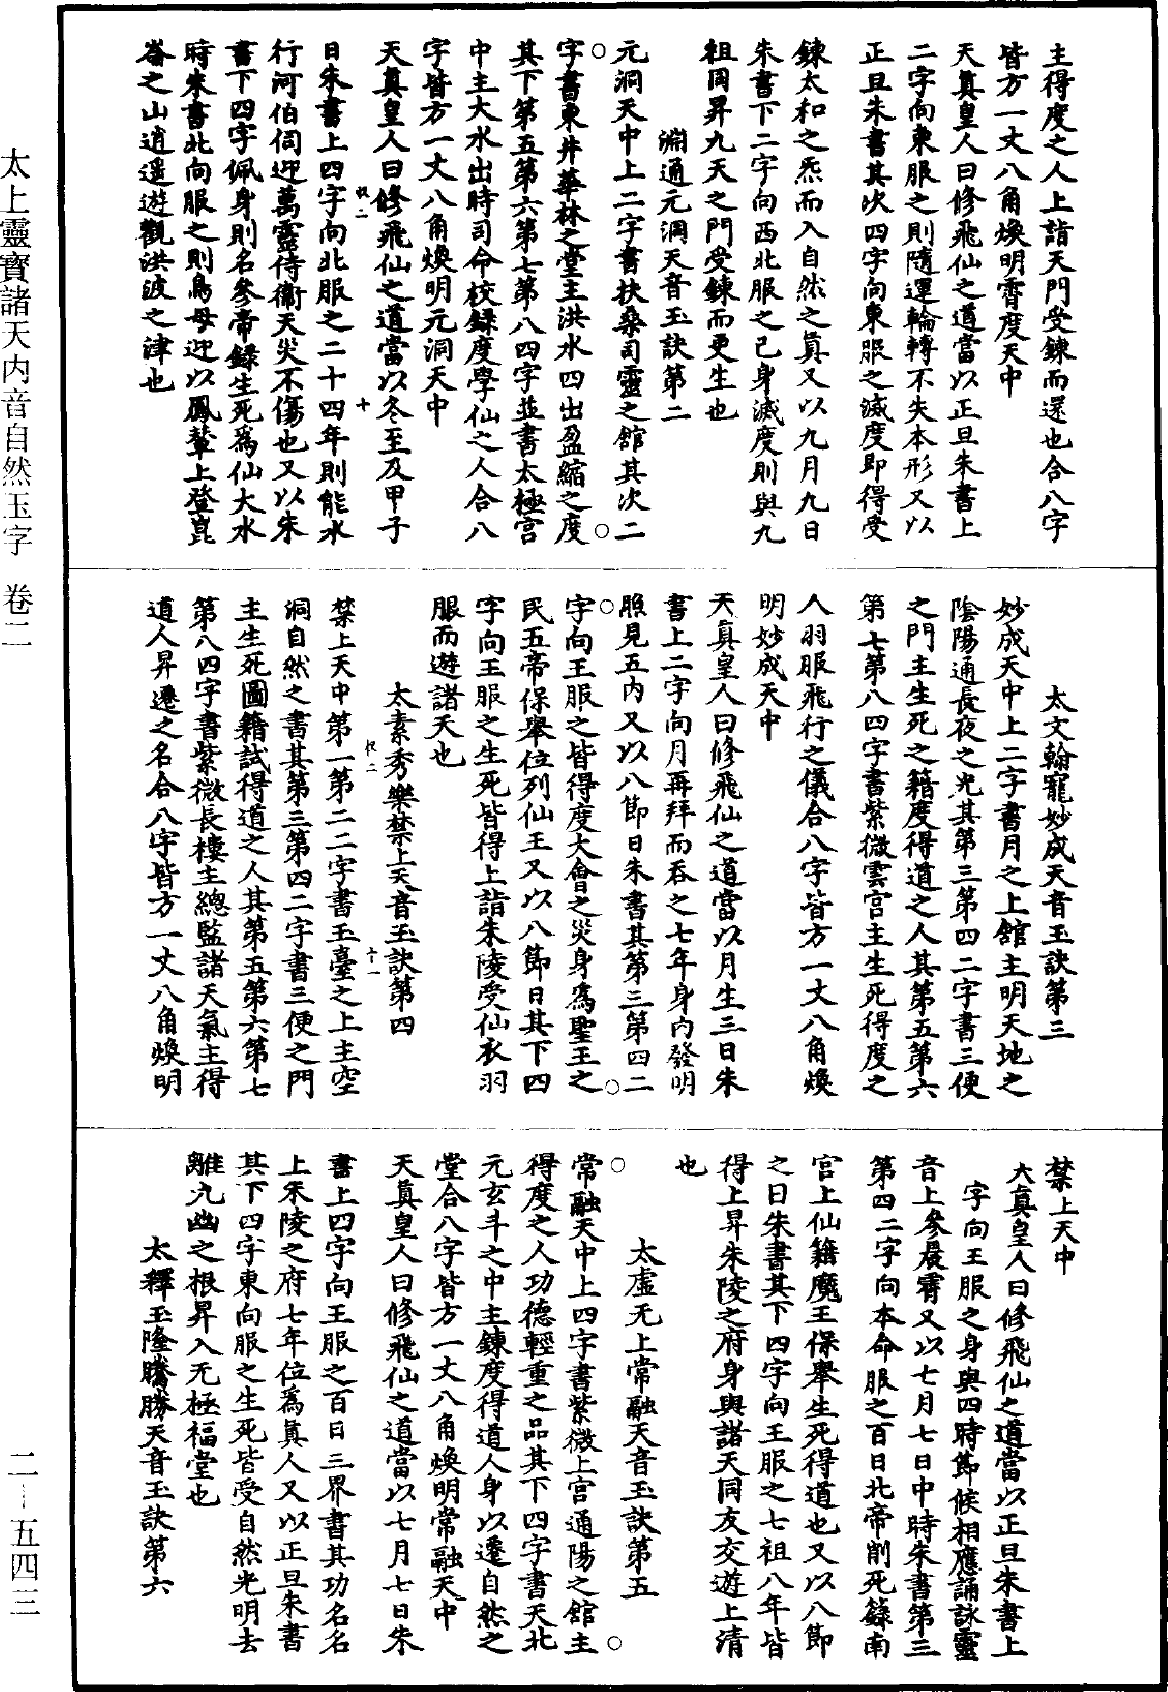 主得度之人上詣天門受鍊而還也合八字
皆方一丈八角煥明霄度天中
天真皇人曰修飛仙之道當以正旦朱書上
二字向東服之則隨運輪轉不失本形又以
正旦朱書其次四字向東服之滅度即得受
鍊太和之炁而入自然之真又以九月九日
朱書下二字向西北服之己身滅度則與九
祖同昇九天之門受鍊而更生也
淵通元洞天音玉訣第二
元洞天中上二字書扶桑司靈之館其次二
字書東井華林之堂主洪水四出盈縮之度
其下第五第六第七第八四字並書太極宮
中主大水出時司命校錄度學仙之人合八
字皆方一丈八角煥明元洞天中
天真皇人曰修飛仙之道當以冬至及甲子
日朱書上四字向北服之二十四年則能水
行河伯伺迎萬靈侍衛天災不傷也又以朱
書下四字佩身則名參帝錄生死為仙大水
時朱書北向服之則鳥母迎以鳳輦上登崑
崙之山逍遥遊觀洪波之津也
太文翰寵妙成天音玉訣第三
妙成天中上二字書月之上館主明天地之
陰陽通長夜之光其第三第四二字書三便
之門主生死之籍度得道之人其第五第六
第七第八四字書紫微雲宮主生死得度之
人羽服飛行之儀合八字皆方一丈八角煥
明妙成天中
天真皇人曰修飛仙之道當以月生三日朱
書上二字向月再拜而吞之七年身内發明
照見五内又以八節日朱書其第三第四二
字向王服之皆得度大會之災身為聖王之
民五帝保舉位列仙王又以八節日其下四
字向王服之生死皆得上詣朱陵受仙衣羽
服而遊諸天也
太素秀樂禁上天音玉訣第四
禁上天中第一第二二字書玉臺之上主空
洞自然之書其第三第四二字書三便之門
主生死圖籍試得道之人其第五第六第七
第八四字書紫微長樓主總監諸天氣主得
道人昇遷之名合八字皆方一丈八角煥明
禁上天中
天真皇人曰修飛仙之道當以正旦朱書上
字向王服之身與四時節候相應誦詠靈
音上參晨霄又以七月七日中時朱書第三
第四二字向本命服之百日北帝削死籙南
宮上仙籍魔王保舉生死得道也又以八節
之日朱書其下四字向王服之七祖八年皆
得上昇朱陵之府身與諸天同友交遊上清
也
太虛无上常融天音玉訣第五
常融天中上四字書紫微上宮通陽之館主
得度之人功德輕重之品其下四字書天北
元玄斗之中主鍊度得道人身以遷自然之
堂合八字皆方一丈八角煥明常融天中
天真皇人曰修飛仙之道當以七月七日朱
書上四字向王服之百日三界書其功名名
上朱陵之府七年位為真人又以正旦朱書
其下四字東向服之生死皆受自然光明去
離九幽之根昇入无極福堂也
太釋玉隆騰勝天音玉訣第六
太上靈寶諸天内音自然玉字 卷二
二—五四三